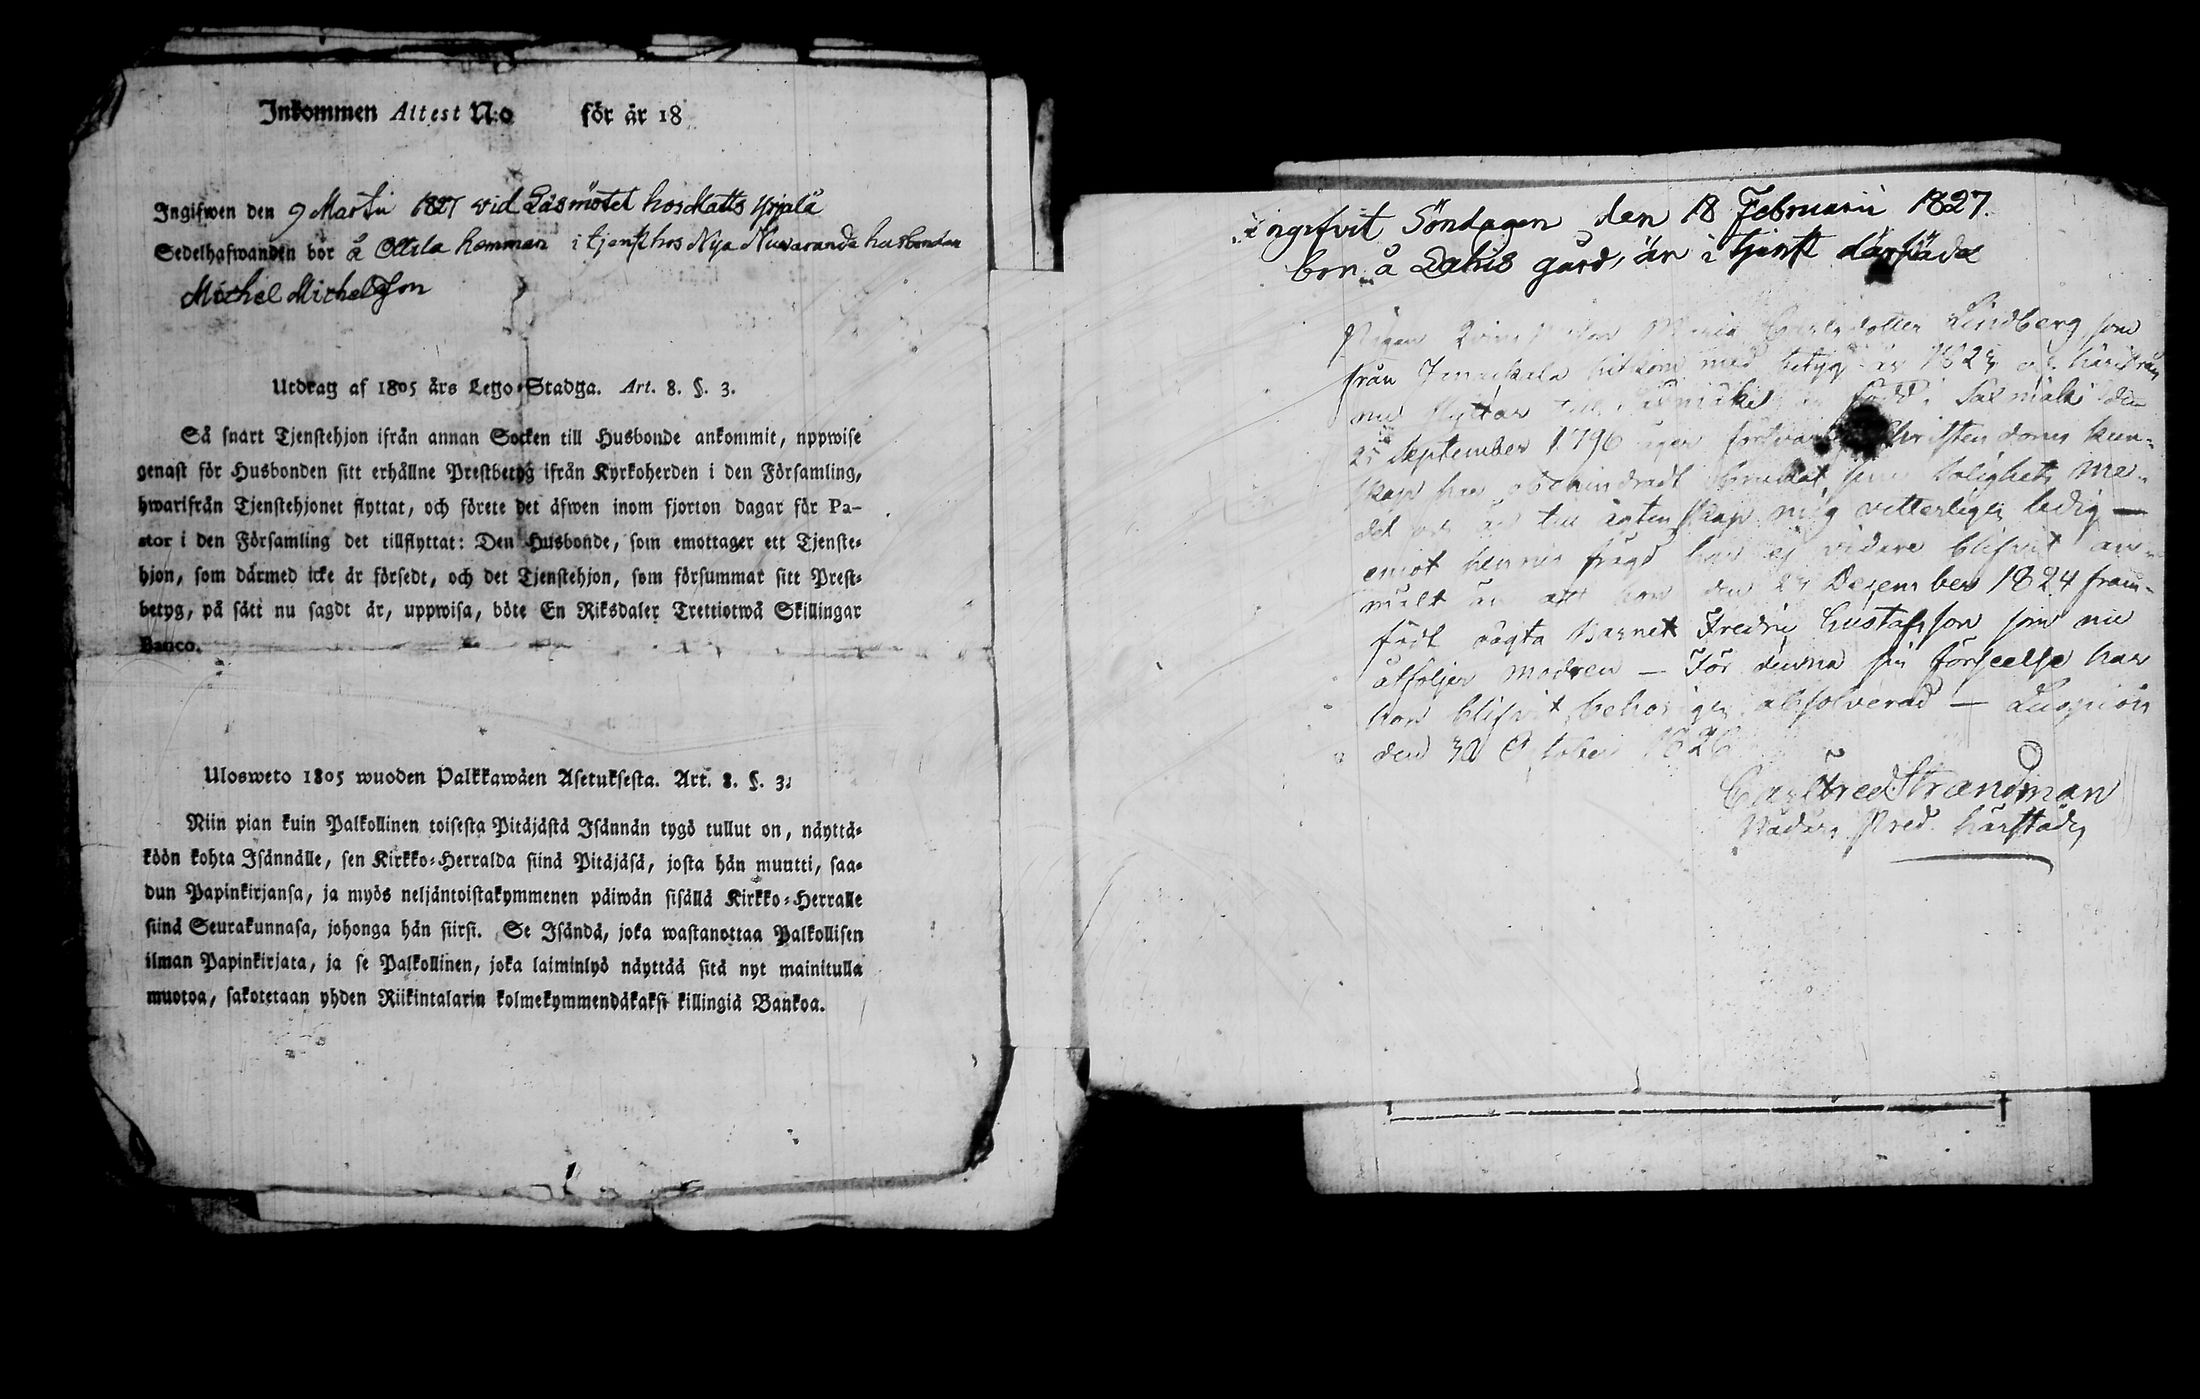 Inkommen Attest N:o för år 18
Ingifwen den 9 Martii 1827 vid Läsmötet hos Matts Yrjälä
Sedelhafwanden bor å Ollila hemman i tjenst hos Nya Nuvarande husbonden
Michel Michelsson
Utdrag af 1805 års Lego-Stadga. Art. 8. §. 3.
Så snart Tjenstehjon ifrån annan Socken till Husbonde ankommit, uppwise
genast för Husbonden sitt erhållne Prestbetyg ifrån Kyrkoherden i den Församling,
hwarifrån Tjenstehjonet flyttat, och förete det äfwen inom fjorton dagar för Pa-
stor i den Församling det tillflyttat: Den Husbonde, som emottager ett Tjenste-
hjon, som därmed icke är försedt, och det Tjenstehjon, som försummar sitt Prest-
betyg, på sätt nu sagdt är, uppwisa, böte En Riksdaler Trettiotwå Skillingar
Banco.
Ulosweto 1805 wuoden Palkkawäen Asetuksesta. Art. 8. §. 3.
Niin pian kuin Palkollinen toisesta Pitäjästä Isännän tygö tullut on, näyttä-
köön kohta Isännälle, sen Kirkko-Herralda siinä Pitäjäsä, josta hän muutti, saa-
dun Papinkirjansa, ja myös neljäntoistakymmenen päiwän sisällä Kirkko-Herralle
siinä Seurakunnasa, johonga hän siirsi. Se Isändä, joka wastanottaa Palkollisen
ilman Papinkirjata, ja se Palkollinen, joka laiminlyö näyttää sitä nyt mainitulla
muotoa, sakotetaan yhden Riikintalarin kolmekymmendäkaksi killingiä Bankoa.
ingifvit Söndagen den 18 Februarii 1827.
bor å Lahis gård, är i tjenst därstädes
Pigan Lindberg som
från hitkom med betyg år
nu flyttar till är född i den
25 September 1796 äger Christendoms kun-
skap har salighets me-
del och är till äktenskap mig vitterligen ledig —
emot hennes frägd har ej vidare blifvit an-
mält än att hon den Dezember 1824 fram-
födt oägta Barnet Fredric Gustafsson som nu
åtföljer modren — För denna sin förseelse har
hon blifvit behörigen absolverad —
den 30 October 1826
Strandman
Pred. härstädes